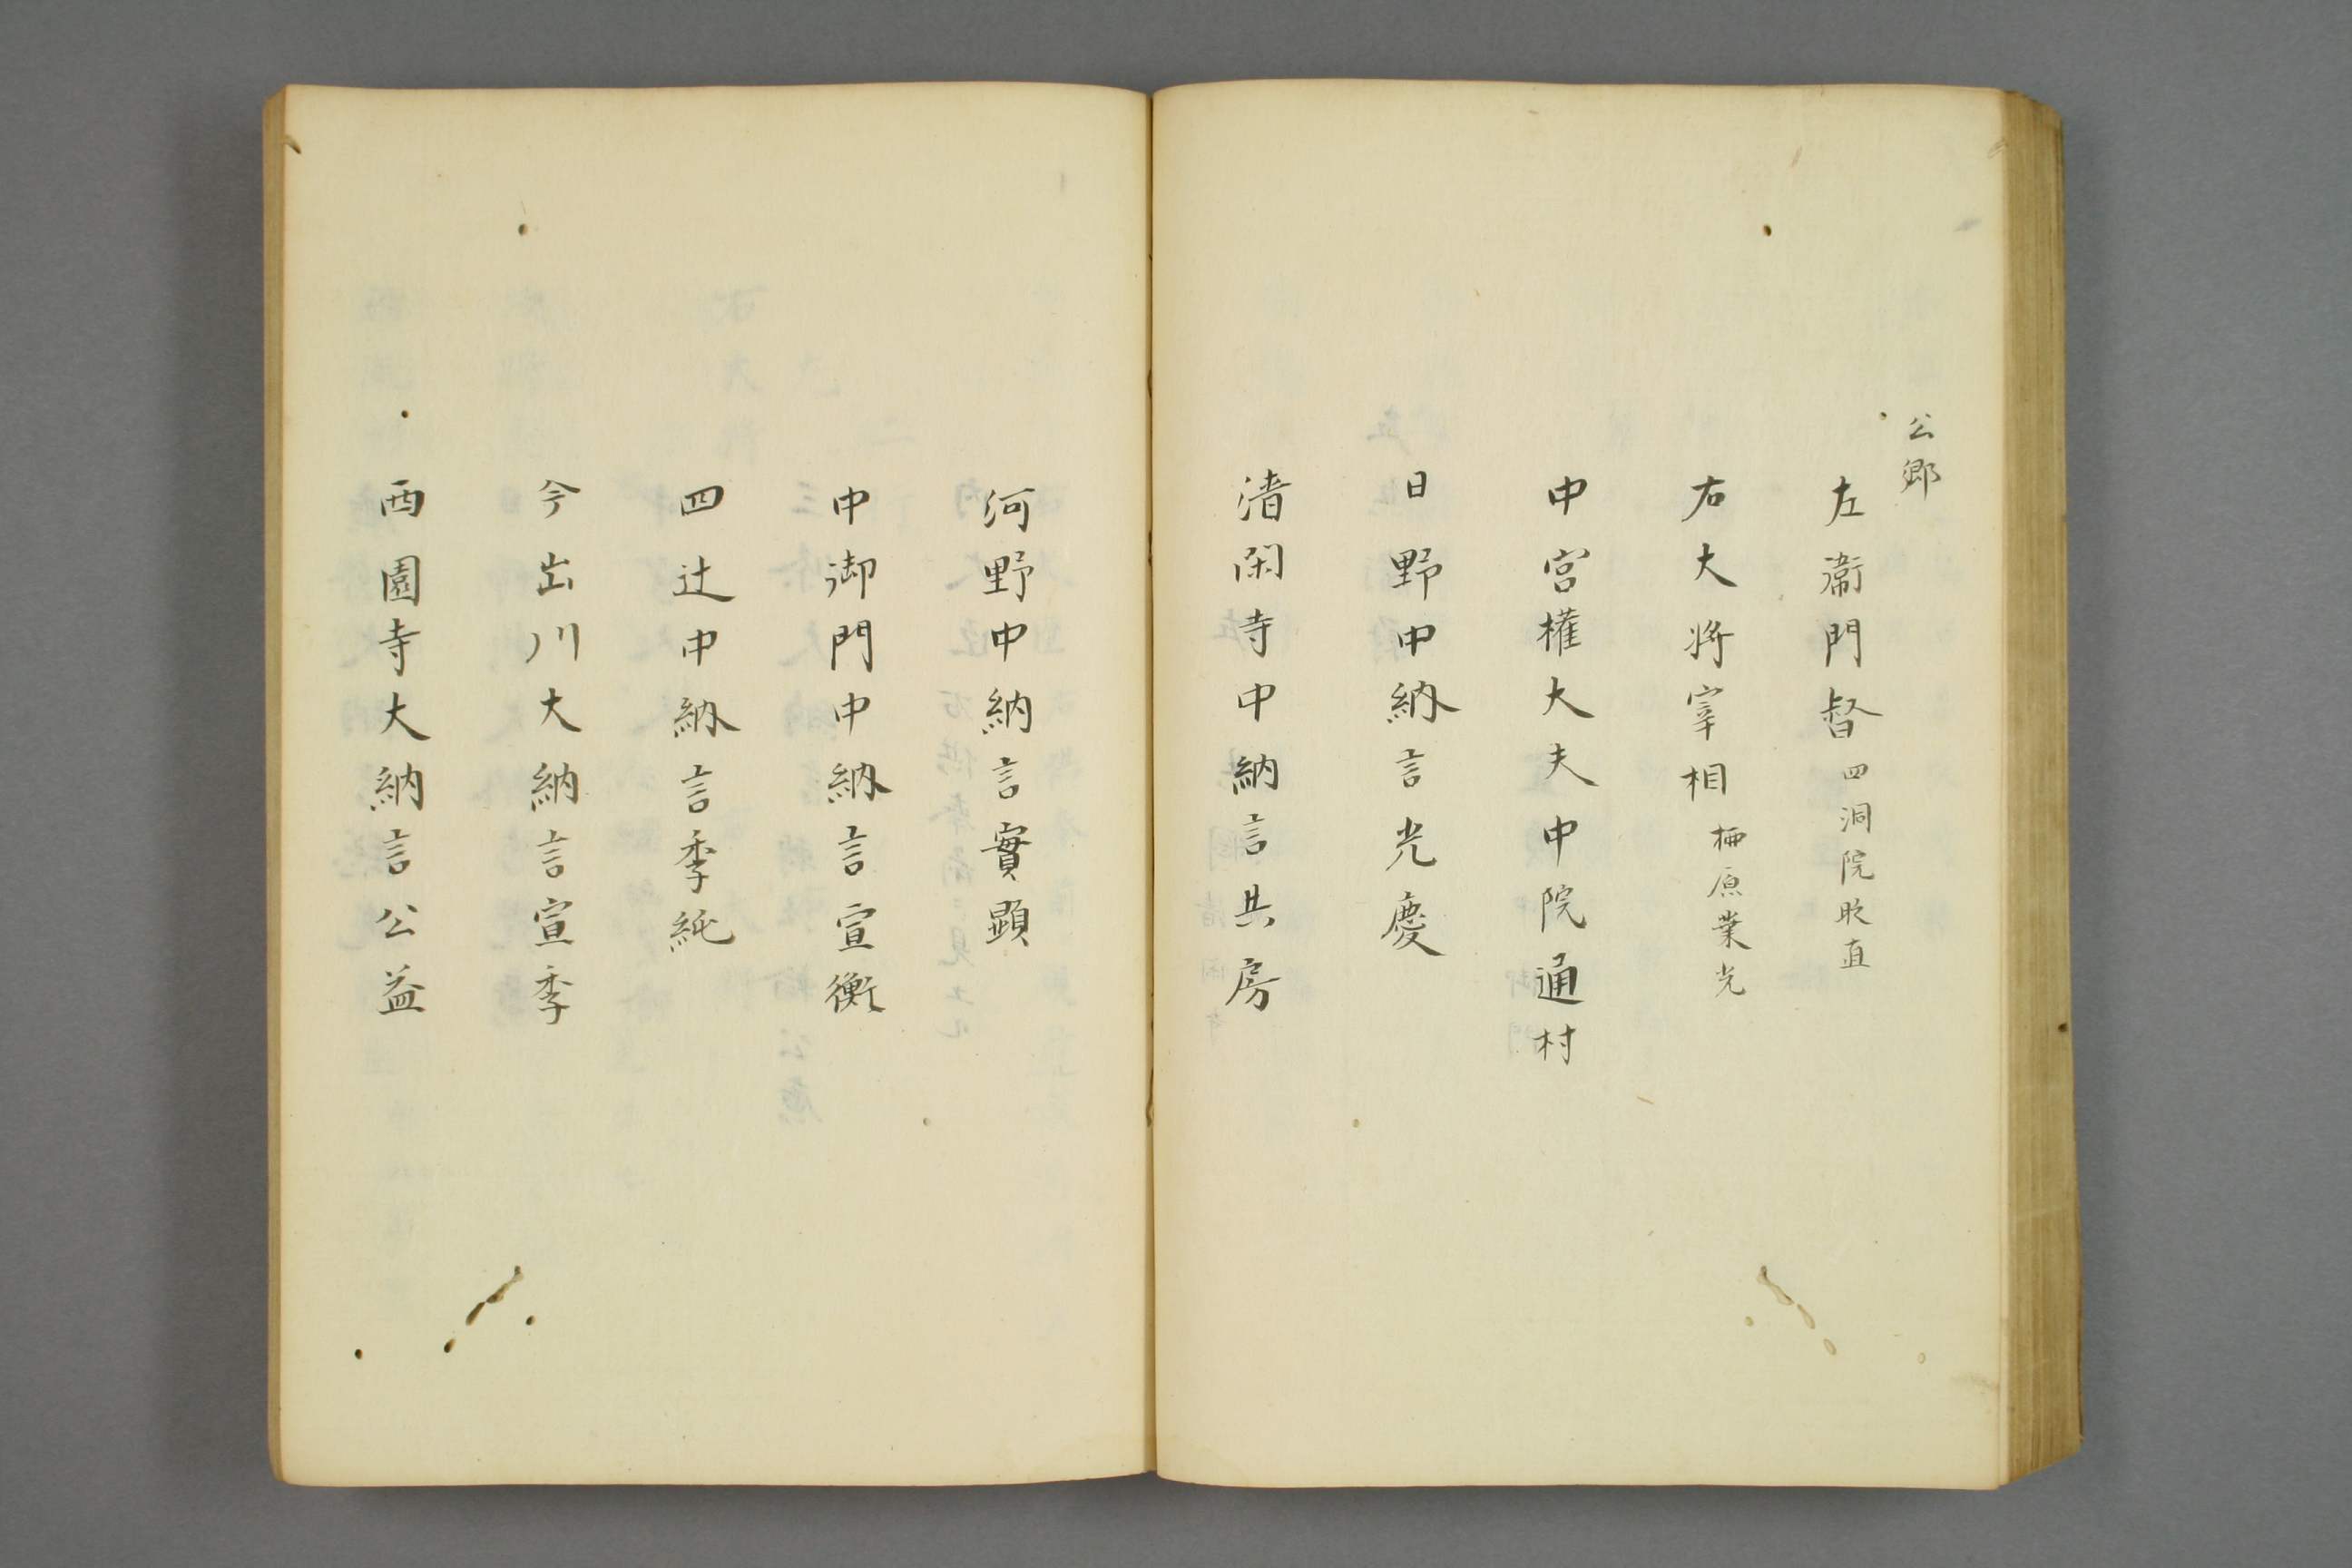 公卿
左衞門督 四洞院時直
右大將宰相 柳原業光
中宮權大夫中院通村
日野中納言光慶
清閑寺中納言共房
河野中納言實顕
中御門中納言宣衡
四辻中納言季継
今出川大納言宣季
西園寺大納言公益